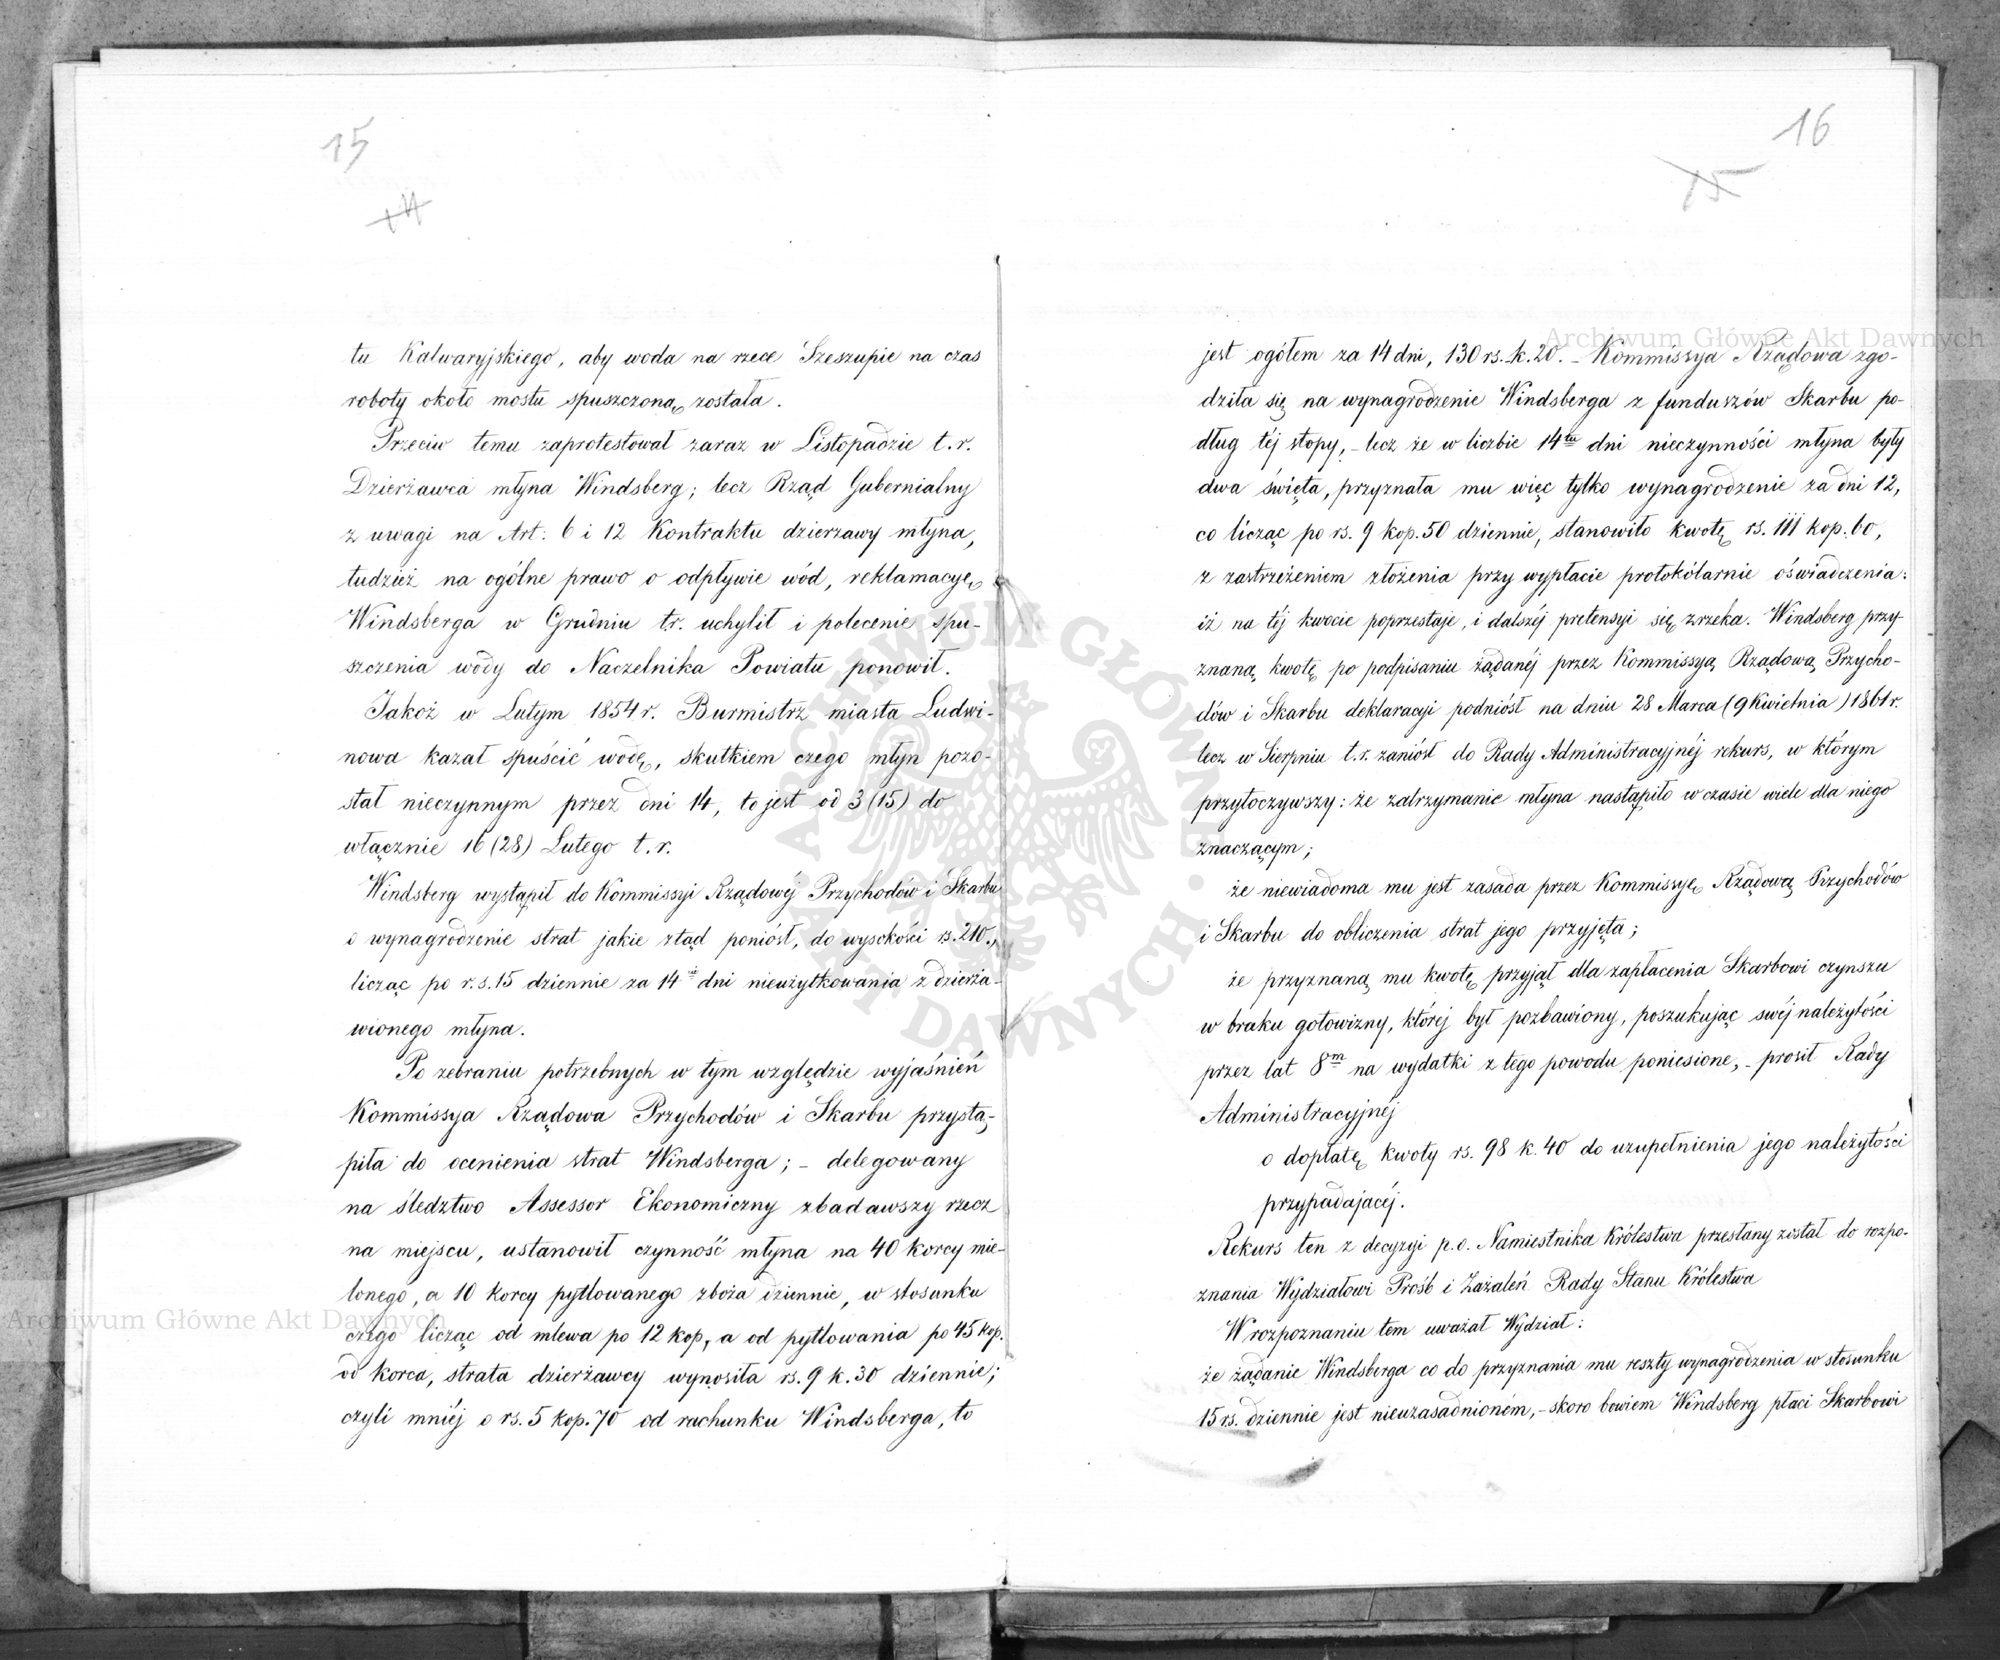 15
14
tu Kalwaryjskiego, aby woda na rzece Szeszupie na czas
roboty około mostu spuszczoną została.
Przeciw temu zaprotestował zaraz w Listopadzie t.r.
Dzierżawca młyna Windsberg; lecz Rząd Gubernialny
z uwagi na Art: 6 i 12 Kontraktu dzierzawy młyna,
tudzież na ogólne prawo o odpływie wód, reklamacyę
Windsberga w Grudniu t.r. uchylił i polecenie spu-
szczenia wody do Naczelnika Powiatu ponowił.
Jakoż w Lutym 1854 r. Burmistrz miasta Ludwi-
nowa kazał spuścić wodę, skutkiem czego młyn pozo-
stał nieczynnym przez dni 14, to jest od 3 (15) do
włącznie 16 (28) Lutego t.r.
Windsberg wystąpił do Kommissyi Rządowéj Przychodów i Skarbu
o wynagrodzenie strat jakie ztąd poniósł, do wysokości rs. 210.,
licząc po r.s. 15 dziennie za 14 dni nieużytkowania z dzierża-
wionego młyna.
Po zebraniu potrzebnych w tym względzie wyjaśnień
Kommissya Rządowa Przychodów i Skarbu przystą-
piła do ocenienia strat Windsberga; – delegowany
na śledztwo Assessor Ekonomiczny zbadawszy rzecz
na miejscu, ustanowił czynność młyna na 40 korcy mie-
lonego, a 10 korcy pytlowanego zboża dziennie, w stosunku
czego licząc od mlewa po 12 kop, a od pytlowania po 45 kop.
od korca, strata dzierżawcy wynosiła rs. 9 k. 30 dziennie;
czyli mniéj o rs. 5 kop. 70 od rachunku Windsberga, to
16
15
jest ogółem za 14 dni, 130 rs. k. 20. – Kommissya Rządowa zgo-
dziła się na wynagrodzenie Windsberga z funduszów Skarbu po-
dług téj stopy, – lecz że w liczbie 14tu dni nieczynności młyna były
dwa święta, przyznała mu więc tylko wynagrodzenie za dni 12,
co licząc po rs. 9 kop. 50 dziennie, stanowiło kwotę rs. 111 kop. 60,
z zastrzeżeniem złożenia przy wypłacie protokólarnie oświadczenia:
iż na téj kwocie poprzestaje, i dalszéj pretensyi się zrzeka. Windsberg przy-
znaną kwotę po podpisaniu żądanéj przez Kommissyą Rządową Przycho-
dów i Skarbu deklaracyi podniósł na dniu 28 Marca (9 Kwietnia) 1861 r.
lecz w Sierpniu t.r. zaniósł do Rady Administracyjnéj rekurs, w którym
przytoczywszy: że zatrzymanie młyna nastąpiło w czasie wiele dla niego
znaczącym;
że niewiadoma mu jest zasada przez Kommissyę Rządową Przychodów
i Skarbu do obliczenia strat jego przyjęta;
że przyznaną mu kwotę przyjął dla zapłacenia Skarbowi czynszu
w braku gotowizny, któréj był pozbawiony, poszukując swéj należytości
przez lat 8m na wydatki z tego powodu poniesione, – prosił Rady
Administracyjnéj
o dopłatę kwoty rs. 98 k. 40 do uzupełnienia jego należytości
przypadajacéj.
Rekurs ten z decyzyi p.o. Namiestnika Królestwa przesłany został do rozpo-
znania Wydziałowi Prośb i Zażaleń Rady Stanu Królestwa
W rozpoznaniu tem uważał Wydział:
że żądanie Windsberga co do przyznania mu reszty wynagrodzenia w stosunku
15 rs. dziennie jest nieuzasadnioném, – skoro bowiem Windsberg płaci Skarbowi
Archiwum Główne Akt Dawnych
Archiwum Główne Akt Dawnych
ARCHIWUM GŁÓWNE AKT DAWNYCH